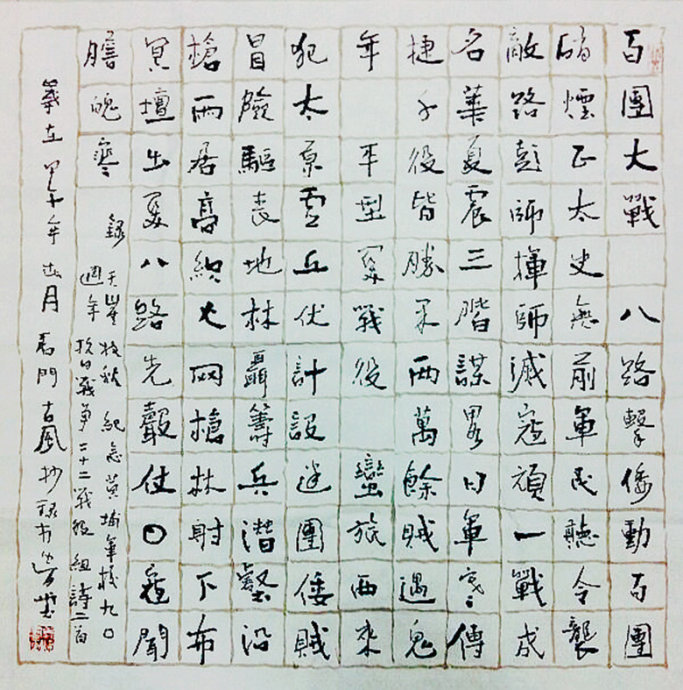 百團大戰 八路擊倭動百團
硝煙正太史無前軍民聽令襲
敵路彭師揮師滅寇頑一戰成
名華夏震三踏謀畧日軍傳
捷千役皆勝果兩萬餘賊遇鬼
年 平型关戰役 蠻旅西來
犯太原雲丘伏計設迷團倭賊
冒險驅喪地林聶籌兵潛壑沿
槍雨居高織火网槍林射下布
冥壇出夏八路先轂仗日寇聞
膽魄寒
錄 天崖拾秋 紀念黃埔軍校九〇
週年 抗日戰爭二十二戰役組詩二首
歲在甲午年月門古風抄錄於